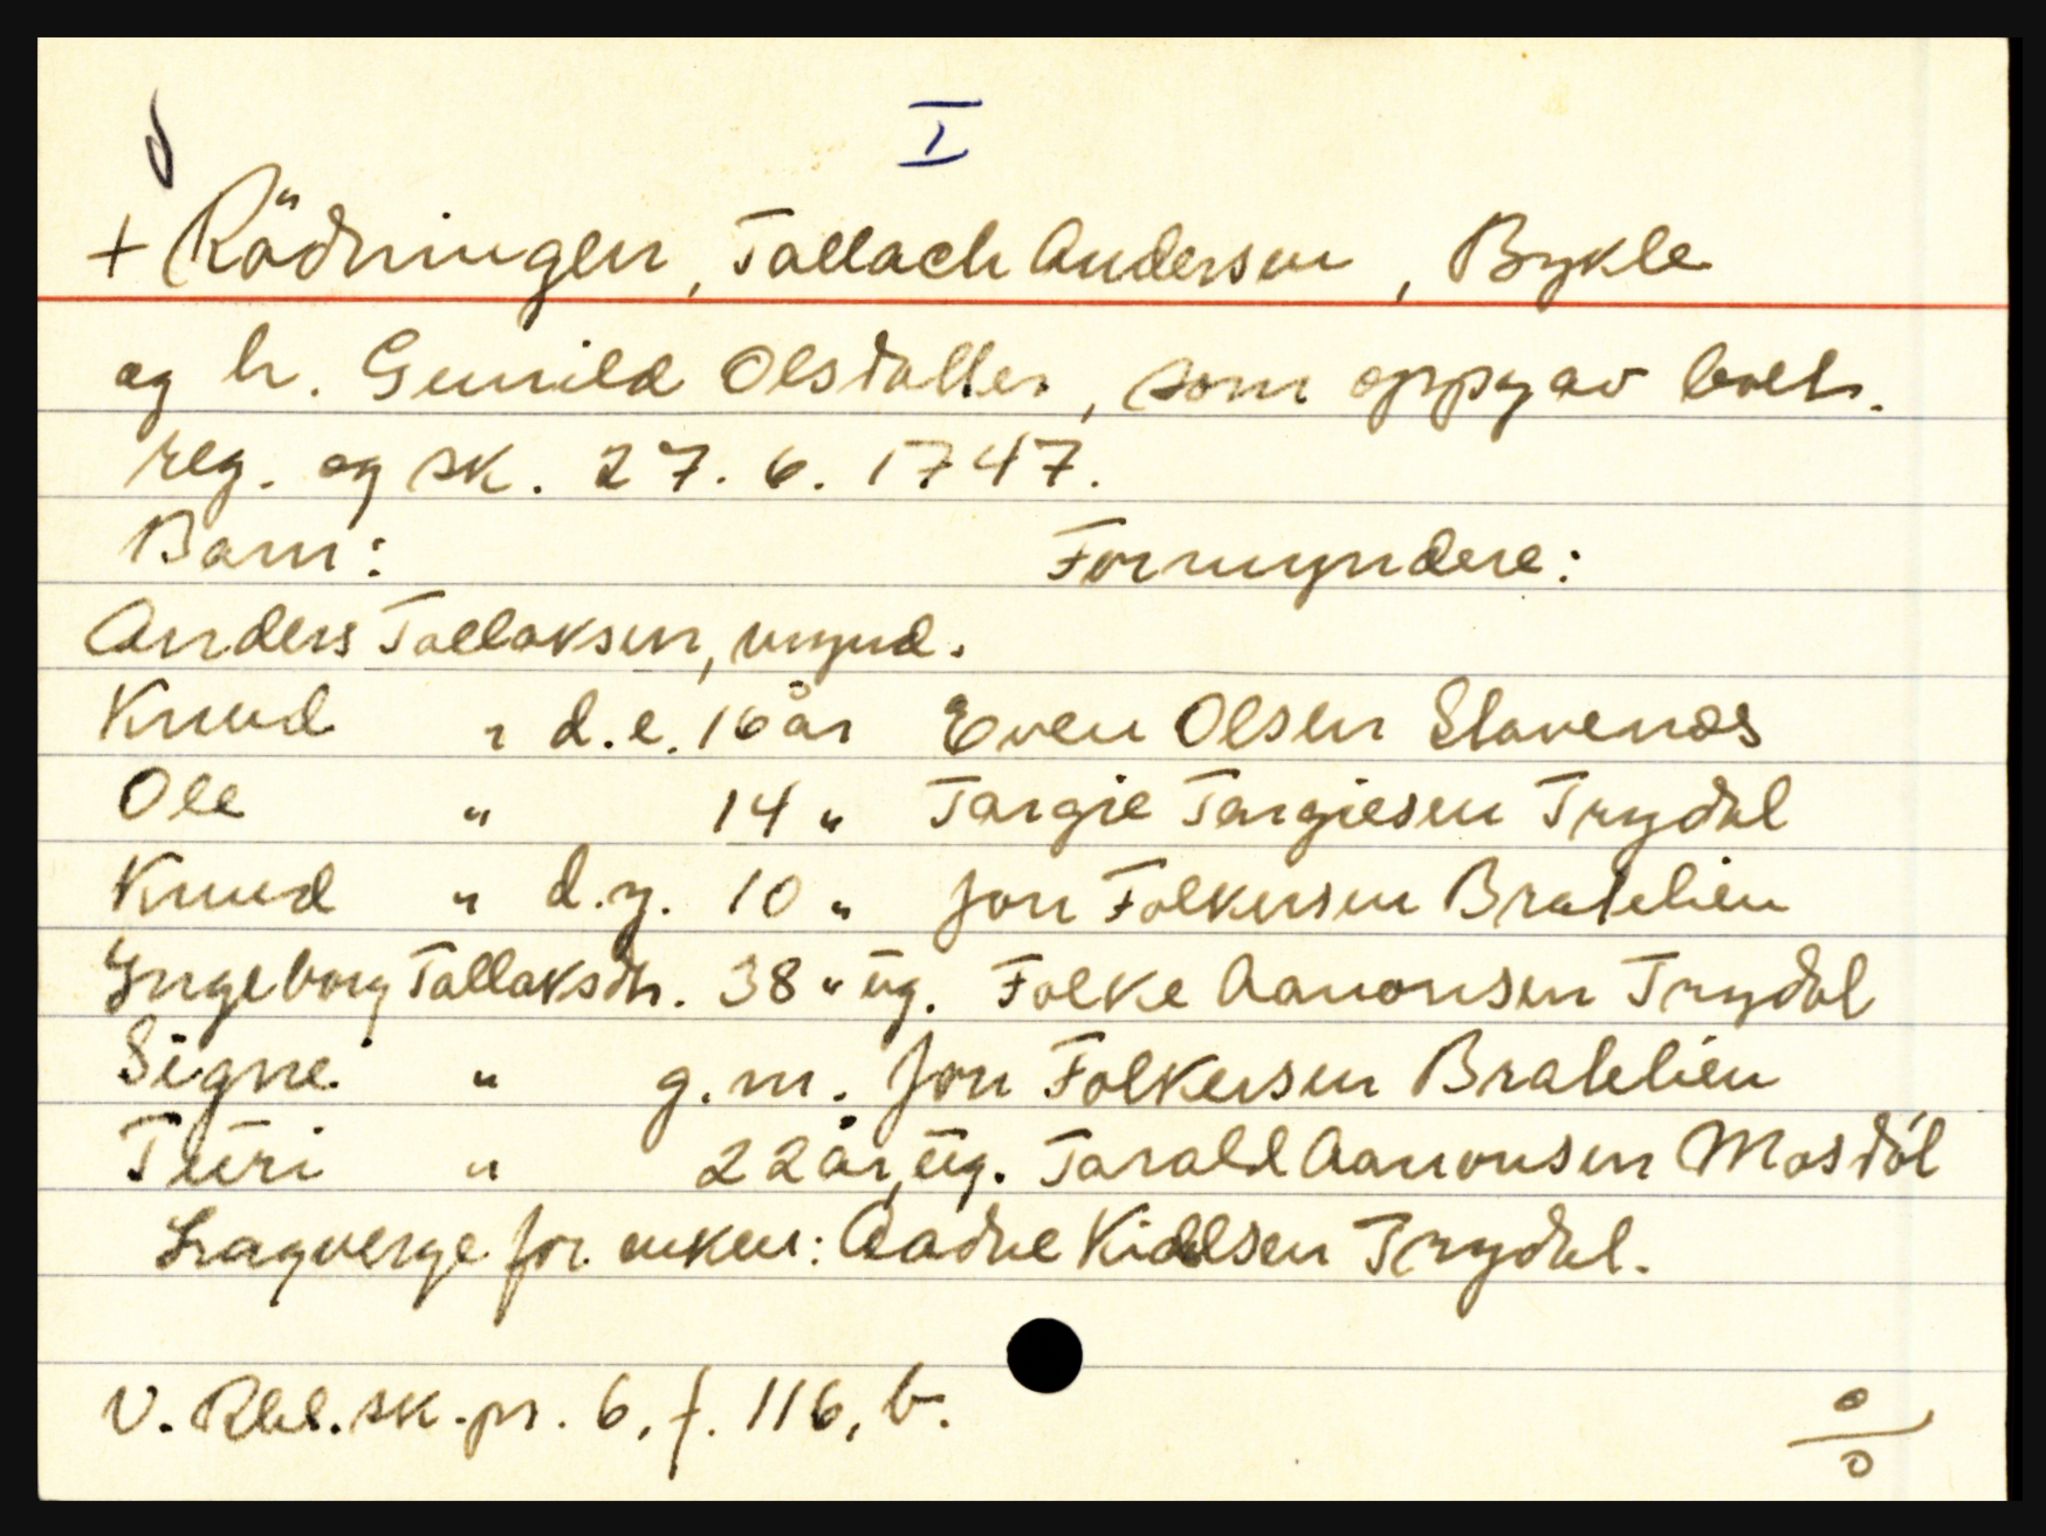 I
+ Rödningen, Tallach Andersen, Bykle
og h. Gunild Olsdatter, som oppgav boets.
reg. og sk. 27.6.1747.
Barn: Formyndere:
Anders Tallaksen, mynd.
Knud " d.e. 16 år Even Olsen Stavenæs
Ole " 14 " Targie Targiesen Trydal
Knud " d.y. 10 " Jon Folkersen Bratelien
Ingeborg Tallaksdtr. 38 " ug. Folke Aanonsen Trydal
Signe " g.m. Jon Folkersen Bratelien
Turi " 22 år, ug. Tarald Aanonsen Mosdöl
Lragverge for enken: Aadne Kidelsen Trydal.
V. Rbl. sk.pr. 6, f. 116, b.